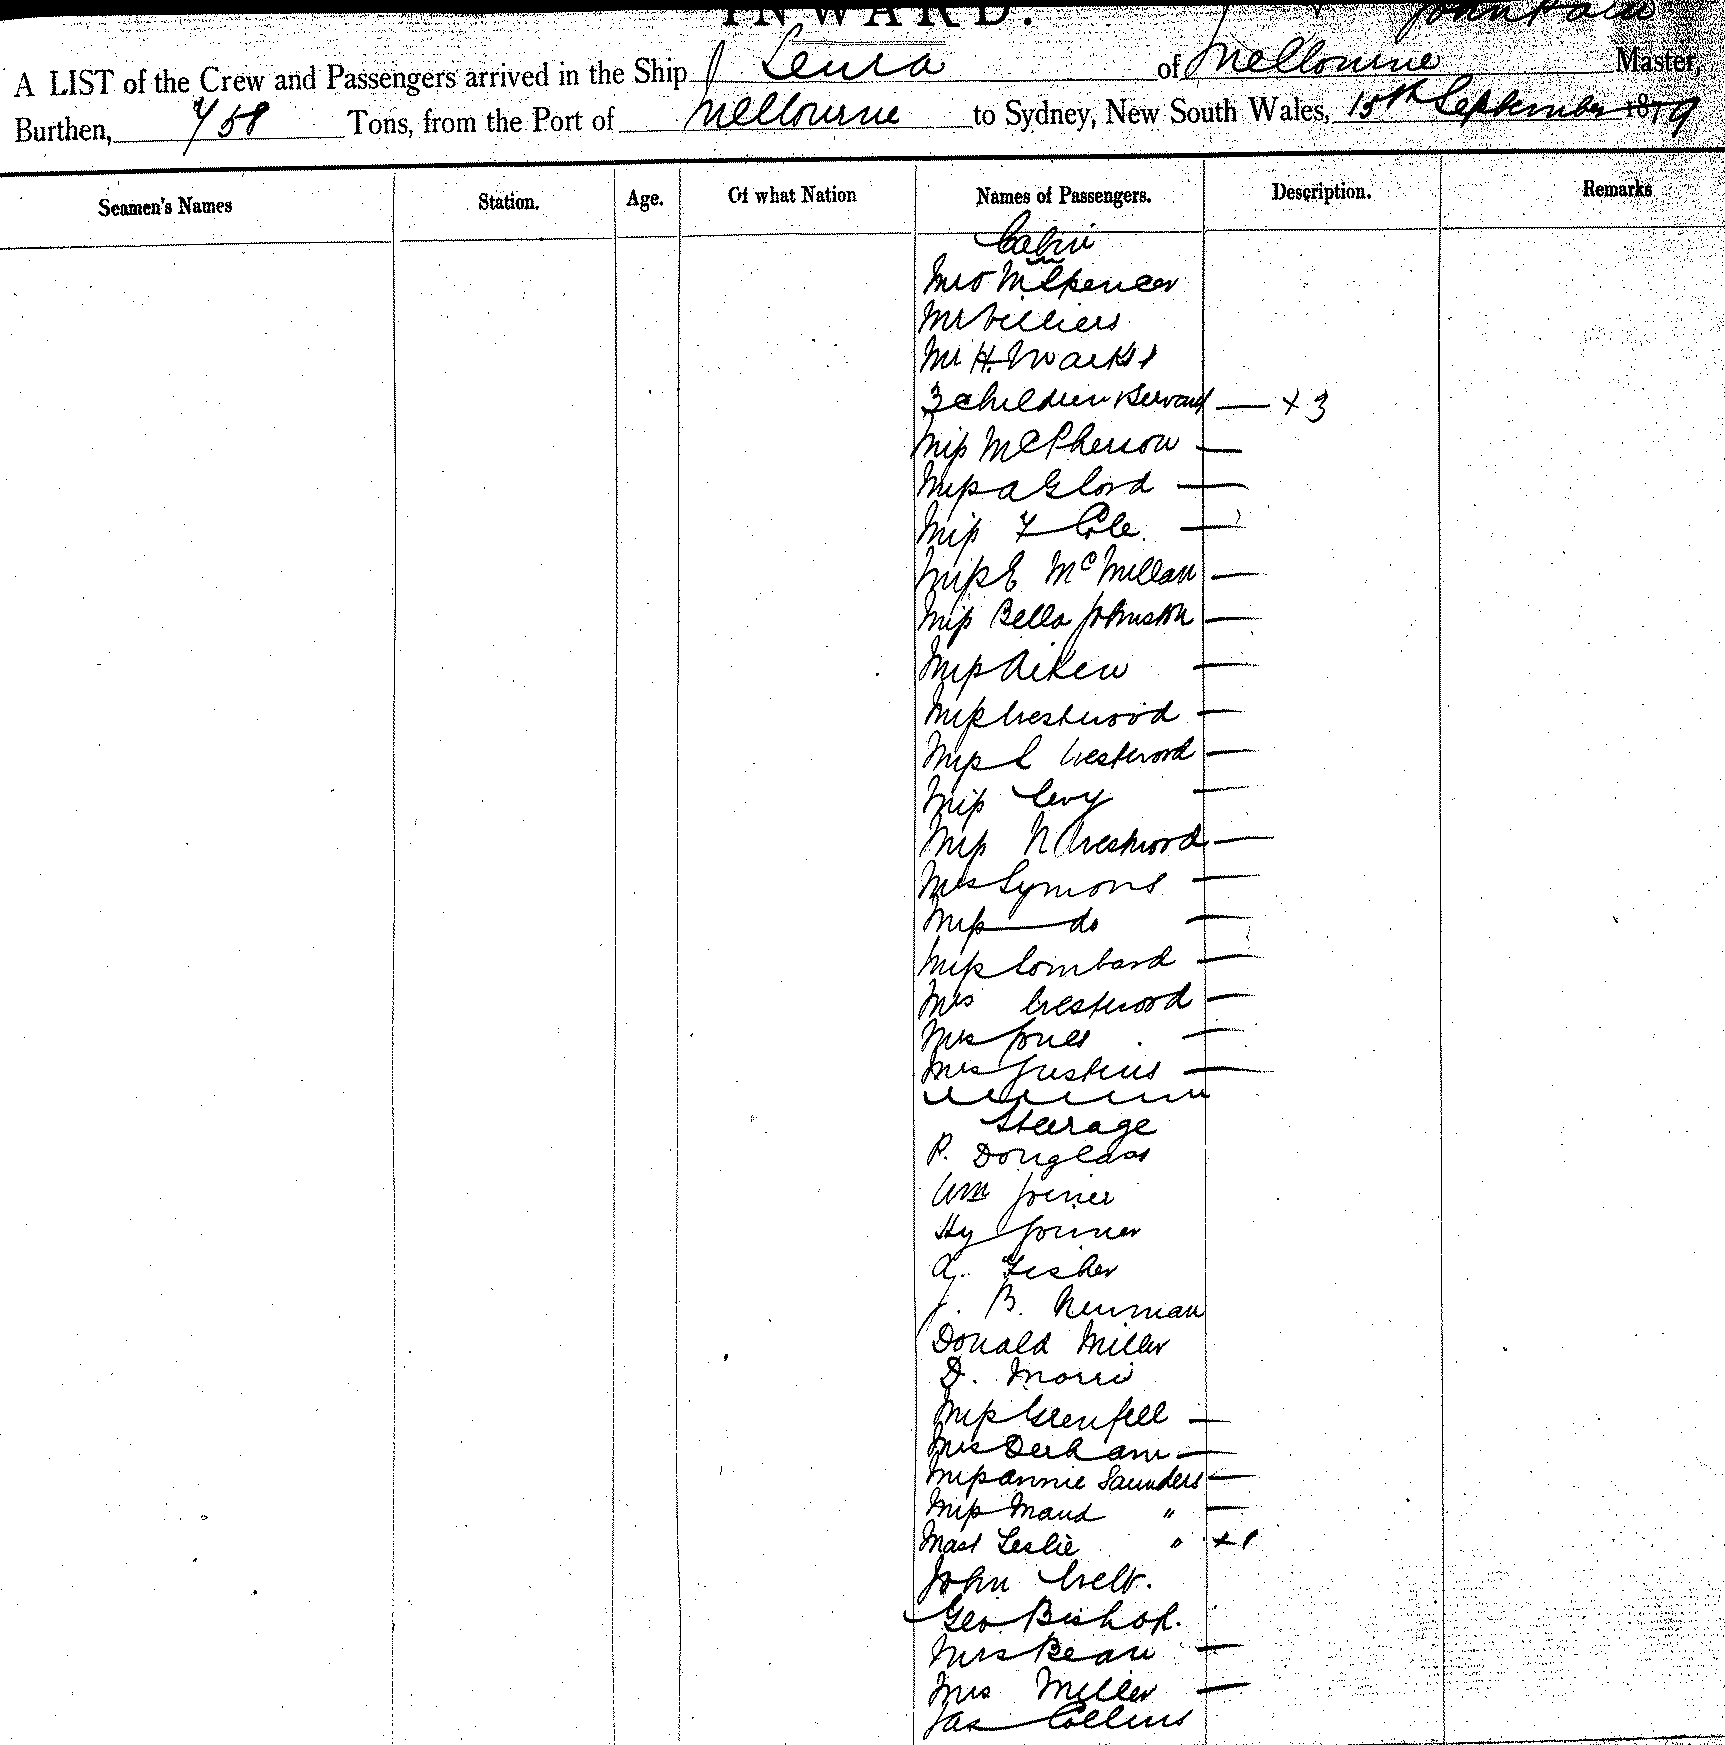 INWARD.
A LIST of the Crew and Passengers arrived in the Ship Leura of Melbourne Master,
Burthen, 458 Tons, from the Port of Melbourne to Sydney, New South Wales, 15th September 1879
Seamen's Names Station. Age. Of what Nation Names of Passengers. Description. Remarks
Cabin
Mrs M Spencer
Mr Villiers
Mr H. Marks
3 children Servant — x 3
Miss McPherson —
Miss A G Lord —
Miss F Cole. —
Miss E McMillan —
Miss Bella Johnston —
Miss Aiken —
Miss Westwood —
Miss L Westwood —
Miss Levy —
Miss N Westwood —
Mrs Symons —
Miss do —
Miss Lombard —
Mrs Westwood —
Mrs Jones —
Mrs Justins —
Steerage
P. Douglass
Wm Joiner
Hy Joiner
A. Fisher
J. B. Newman
Donald Miller
D. Morris
Miss Grenfell —
Mrs Derham —
Miss Annie Saunders —
Miss Maud " —
Mast Leslie " x 1
John Welt.
Geo Bishop.
Mrs Bean —
Mrs Miller —
Jas Collins